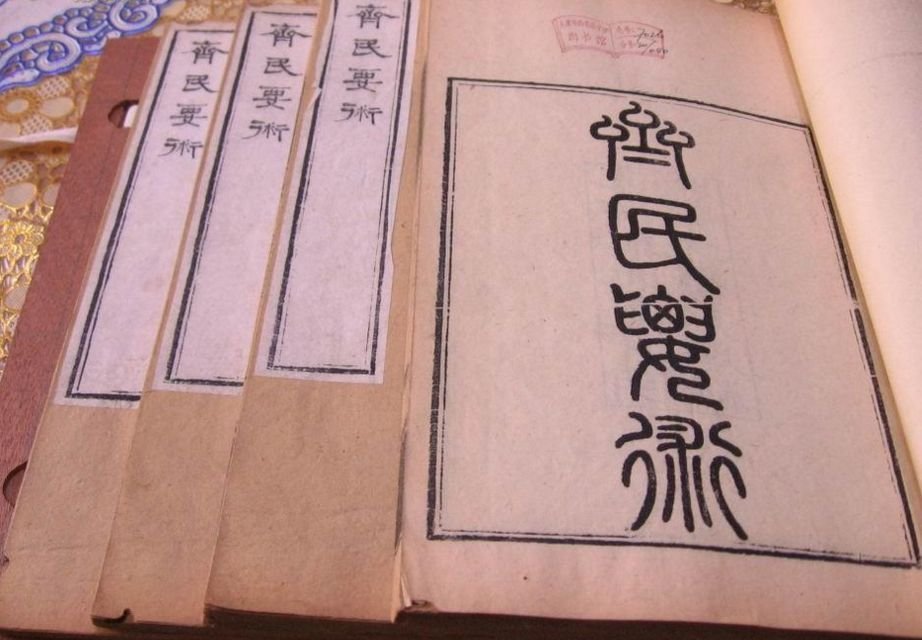 齊民要術
齊民要術
齊民要術
齊民要術
图书馆